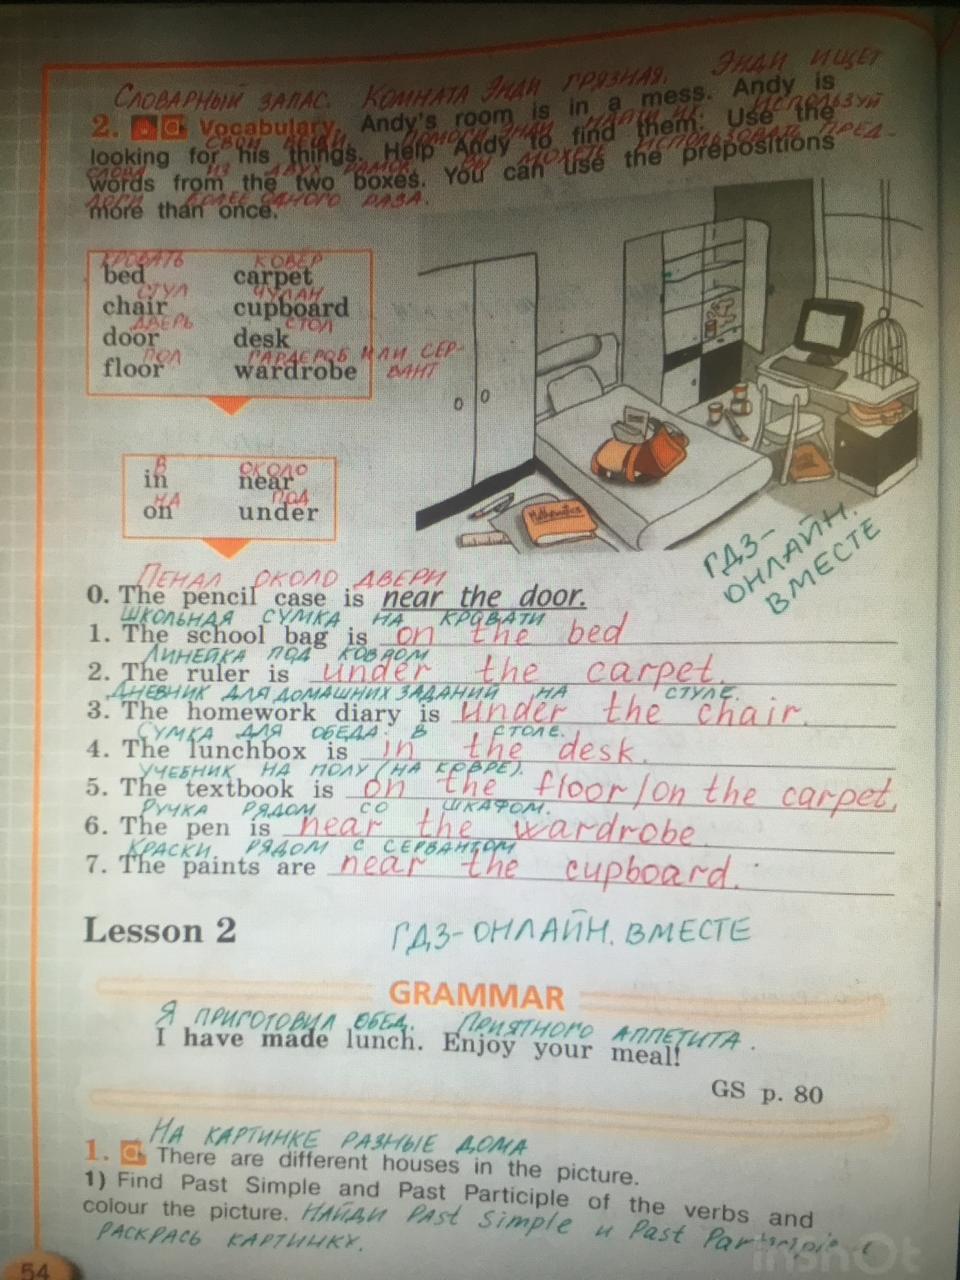 СЛОВАРНЫЙ ЗАПАС. КОМНАТА ЭНДИ ГРЯЗНАЯ. ЭНДИ ИЩЕТ
2. Vocabulary. Andy's room is in a mess. Andy is
СВОИ ВЕЩИ ПОМОГИ ЭНДИ НАЙТИ ИХ ИСПОЛЬЗУЙ
looking for his things. Help Andy to find them. Use the
СЛОВА ИЗ ДВУХ РАМОК. ВЫ МОЖЕТЕ ИСПОЛЬЗОВАТЬ ПРЕД-
words from the two boxes. You can use the prepositions
ЛОГИ БОЛЕЕ ОДНОГО РАЗА.
more than once.
КРОВАТЬ КОВЁР
bed carpet
СТУЛ ЧУЛАН
chair cupboard
ДВЕРЬ СТОЛ
door desk
ПОЛ ГАРДЕРОБ ИЛИ СЕР-
floor wardrobe ВАНТ
В ОКОЛО
in near
НА ПОД
on under
Mathematics
ГДЗ-
ОНЛАЙН.
ВМЕСТЕ
ПЕНАЛ ОКОЛО ДВЕРИ
0. The pencil case is near the door.
ШКОЛЬНАЯ СУМКА НА КРОВАТИ
1. The school bag is on the bed
ЛИНЕЙКА ПОД КОВРОМ
2. The ruler is under the carpet.
ДНЕВНИК ДЛЯ ДОМАШНИХ ЗАДАНИЙ НА СТУЛЕ.
3. The homework diary is under the chair.
СУМКА ДЛЯ ОБЕДА В СТОЛЕ.
4. The lunchbox is in the desk.
УЧЕБНИК НА ПОЛУ (НА КОВРЕ).
5. The textbook is on the floor/on the carpet.
РУЧКА РЯДОМ СО ШКАФОМ.
6. The pen is near the wardrobe
КРАСКИ РЯДОМ С СЕРВАНТОМ
7. The paints are near the cupboard.
Lesson 2 ГДЗ-ОНЛАЙН. ВМЕСТЕ
GRAMMAR
Я ПРИГОТОВИЛ ОБЕД. ПРИЯТНОГО АППЕТИТА.
I have made lunch. Enjoy your meal!
GS p. 80
НА КАРТИНКЕ РАЗНЫЕ ДОМА
1. There are different houses in the picture.
1) Find Past Simple and Past Participle of the verbs and
colour the picture. НАЙДИ Past Simple и Past Participle
РАСКРАСЬ КАРТИНКУ.
InShOt
54